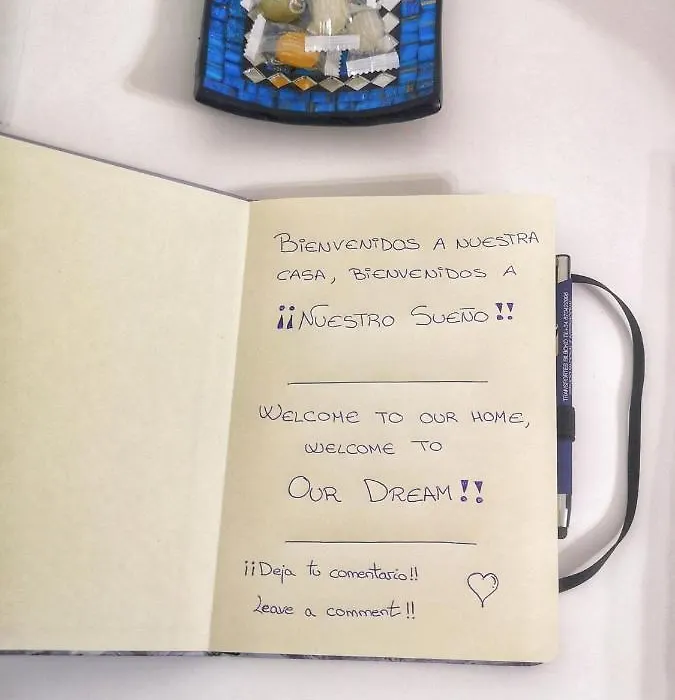 BIENVENIDOS A NUESTRA
CASA, BIENVENIDOS A
¡¡NUESTRO SUEÑO!!
WELCOME TO OUR HOME,
WELCOME TO
OUR DREAM!!
¡¡Deja tu comentario!!
Leave a comment!!